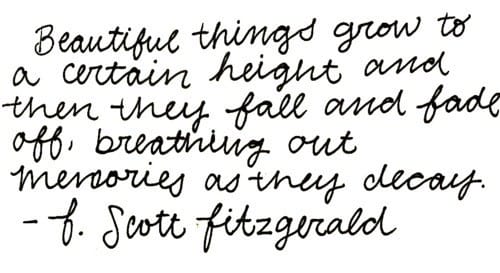 Beautiful things grow to
a certain height and
then they fall and fade
off, breathing out
memories as they decay.
- f. Scott fitzgerald